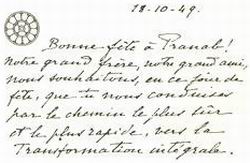 18-10-49.
Bonne fête à Pranab!
Notre grand frère, notre grand ami,
nous souhaitons, en ce jour de
fête, que tu nous conduises
par le chemin le plus sûr
et le plus rapide, vers la
Transformation intégrale.